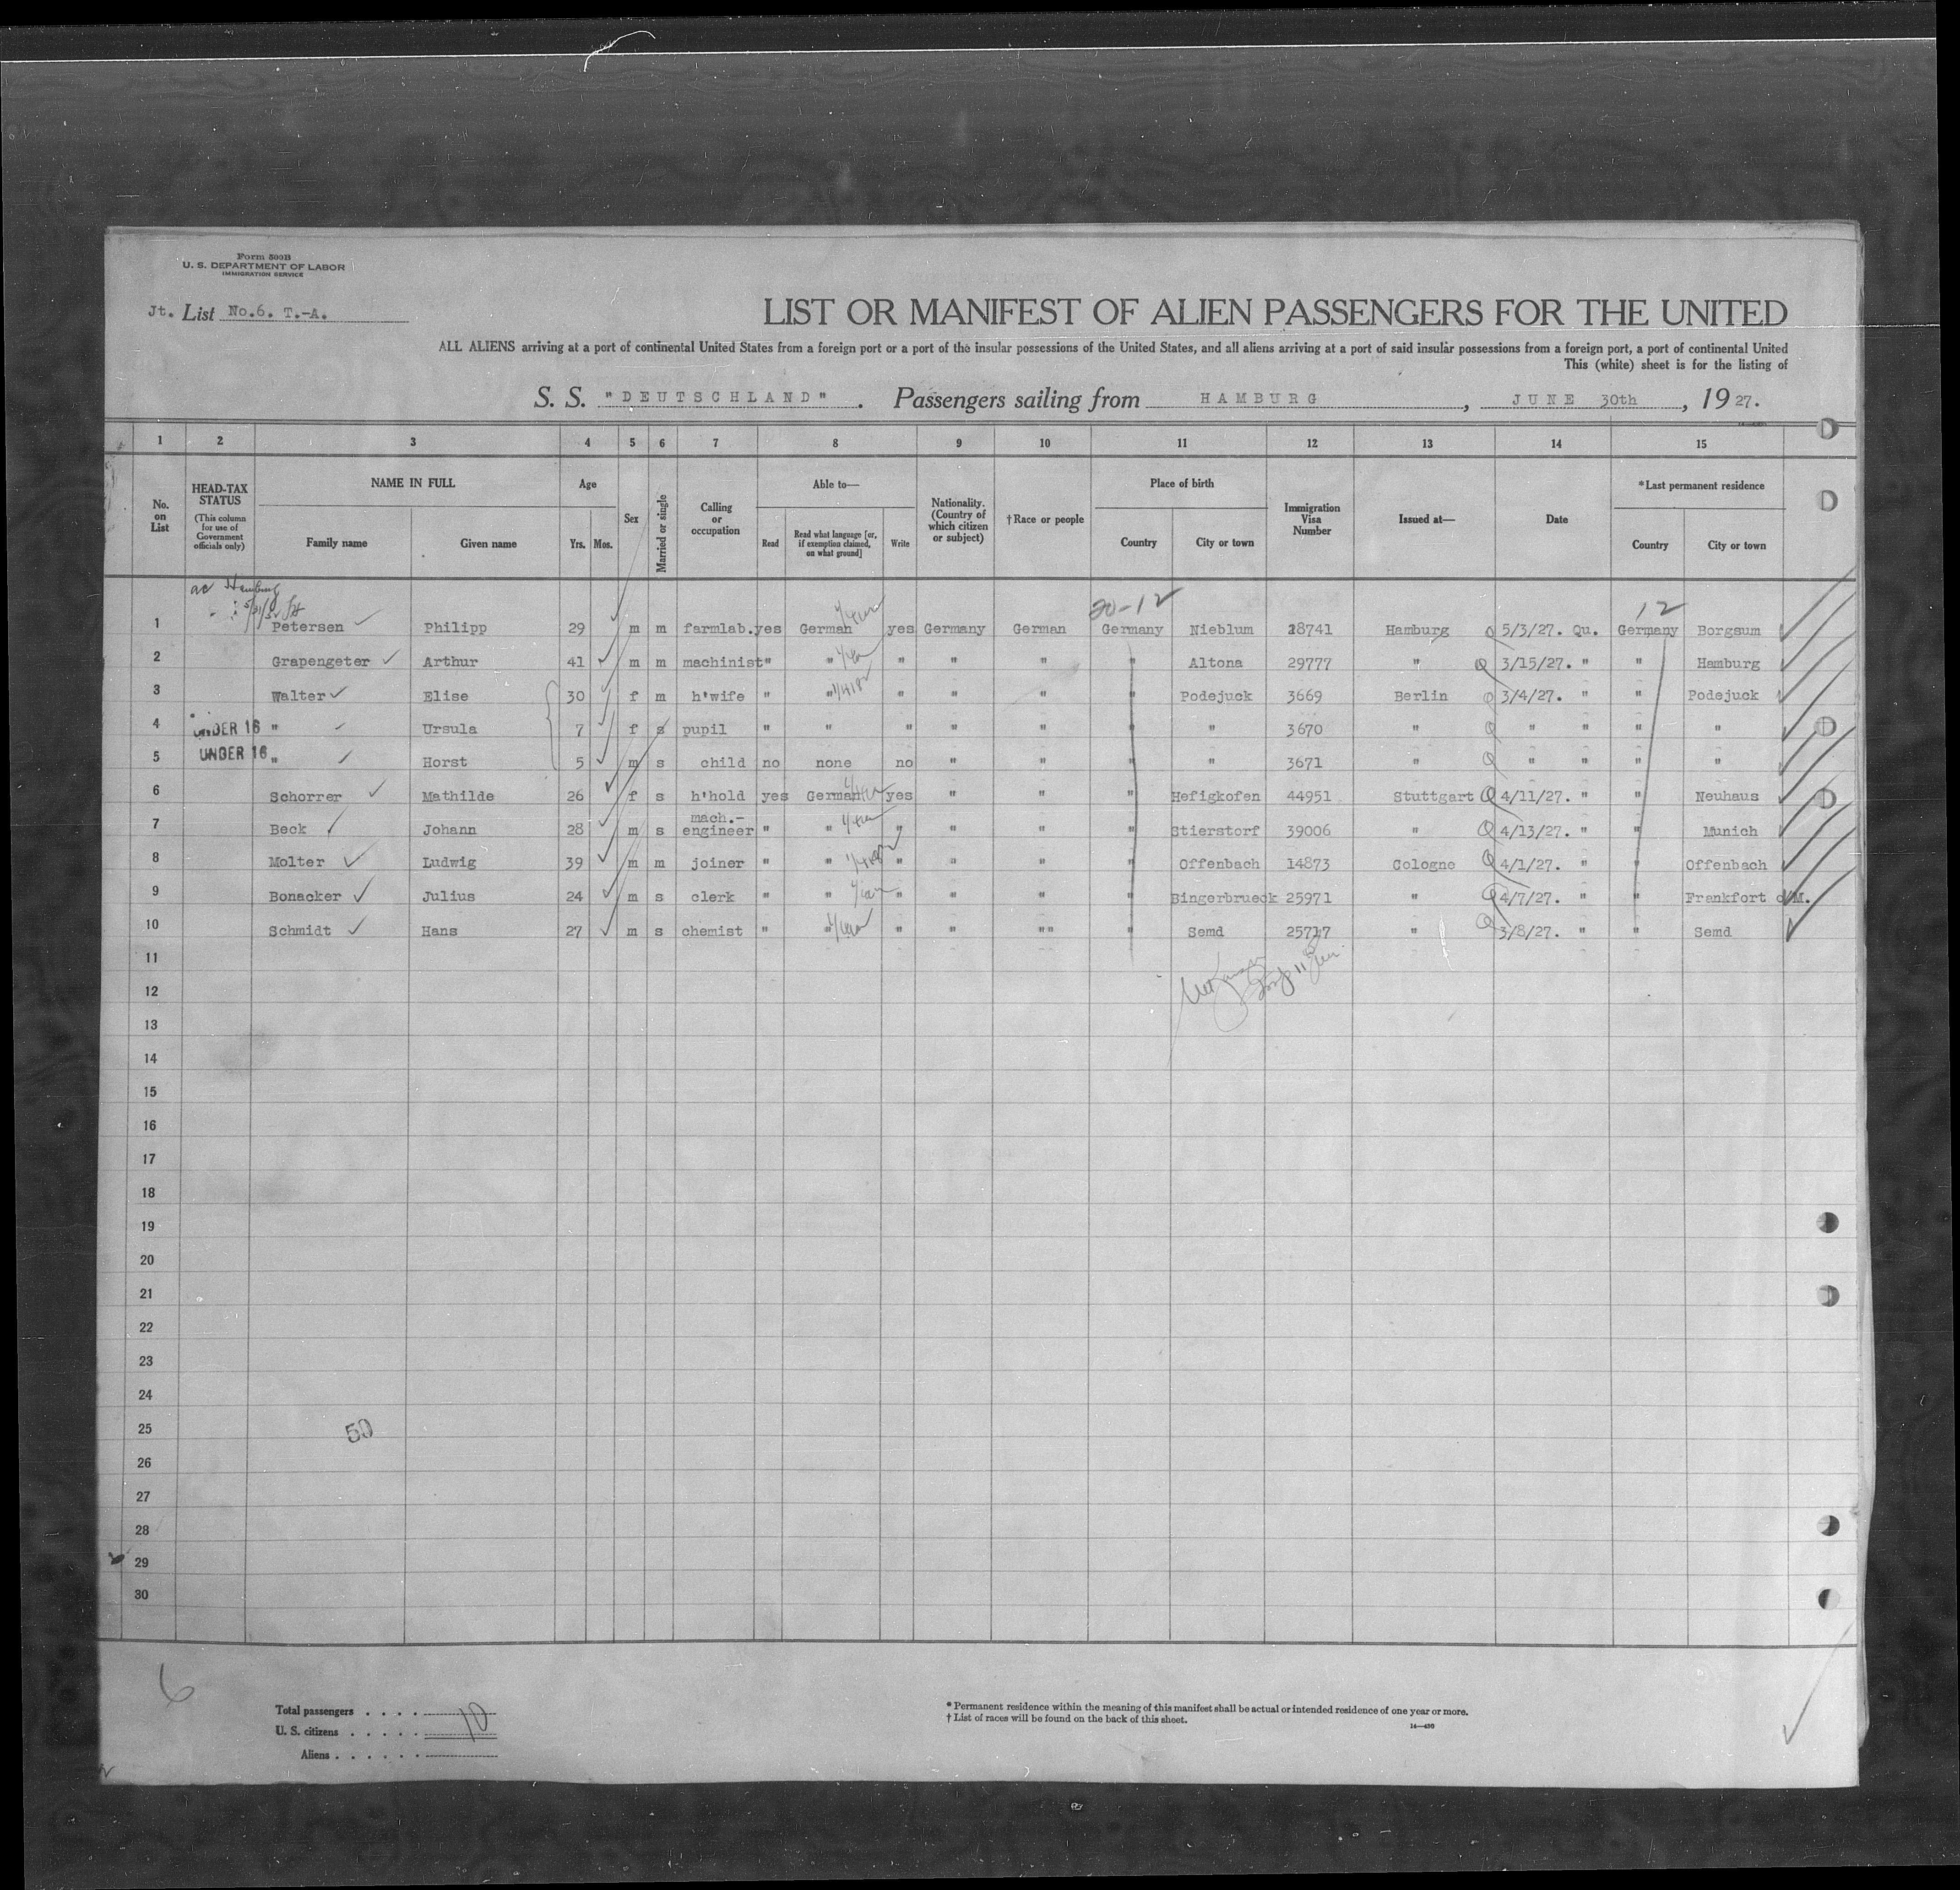 Form 500B
U. S. DEPARTMENT OF LABOR
IMMIGRATION SERVICE
Jt. List No.6. T.-A.
LIST OR MANIFEST OF ALIEN PASSENGERS FOR THE UNITED
ALL ALIENS arriving at a port of continental United States from a foreign port or a port of the insular possessions of the United States, and all aliens arriving at a port of said insular possessions from a foreign port, a port of continental United
This (white) sheet is for the listing of
S. S. "DEUTSCHLAND". Passengers sailing from HAMBURG, JUNE 30th, 1927.
1 2 3 4 5 6 7 8 9 10 11 12 13 14 15
No. on List
HEAD-TAX STATUS (This column for use of Government officials only)
NAME IN FULL Family name Given name
Age Yrs. Mos.
Sex
Married or single
Calling or occupation
Able to— Read Read what language [or, if exemption claimed, on what ground] Write
Nationality. (Country of which citizen or subject)
† Race or people
Place of birth Country City or town
Immigration Visa Number
Issued at—
Date
* Last permanent residence Country City or town
Hamburg
20-12 12
1 Petersen Philipp 29 m m farmlab. yes German yes Germany German Germany Nieblum 28741 Hamburg Q 5/3/27. Qu. Germany Borgsum
2 Grapengeter Arthur 41 m m machinist " " " " " " Altona 29777 " Q 3/15/27. " " Hamburg
3 Walter Elise 30 f m h'wife " " " " " " Podejuck 3669 Berlin Q 3/4/27. " " Podejuck
4 UNDER 16 " Ursula 7 f s pupil " " " " " " " 3670 " Q " " " "
5 UNDER 16 " Horst 5 m s child no none no " " " " 3671 " Q " " " "
6 Schorrer Mathilde 26 f s h'hold yes German yes " " " Hefigkofen 44951 Stuttgart Q 4/11/27. " " Neuhaus
7 Beck Johann 28 m s mach.-engineer " " " " " " Stierstorf 39006 " Q 4/13/27. " " Munich
8 Molter Ludwig 39 m m joiner " " " " " " Offenbach 14873 Cologne Q 4/1/27. " " Offenbach
9 Bonacker Julius 24 m s clerk " " " " " " Bingerbrueck 25971 " Q 4/7/27. " " Frankfort o/M.
10 Schmidt Hans 27 m s chemist " " " " "" " Semd 25717 " Q 3/8/27. " " Semd
11
12
13
14
15
16
17
18
19
20
21
22
23
24
25
50
26
27
28
29
30
6
Total passengers . . . . 10
U. S. citizens . . . . .
Aliens . . . . . .
* Permanent residence within the meaning of this manifest shall be actual or intended residence of one year or more.
† List of races will be found on the back of this sheet.
14—430